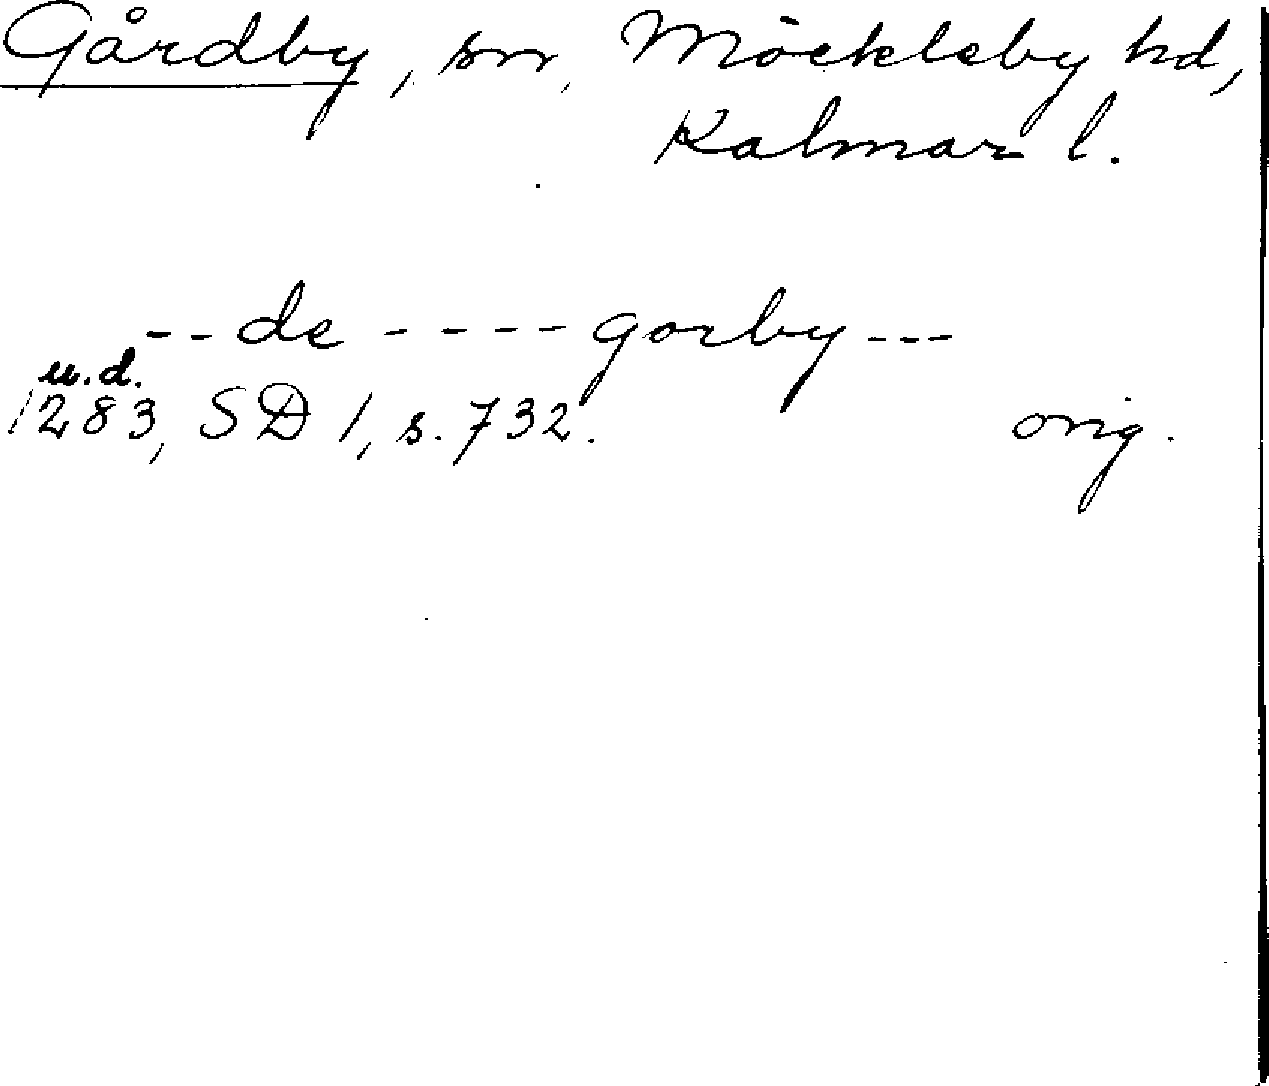 Gårdby, sn, Möckleby hd,
Kalmar l.
-- de ---- gorby ---
u.d.
1283, SD 1, s. 732. orig.